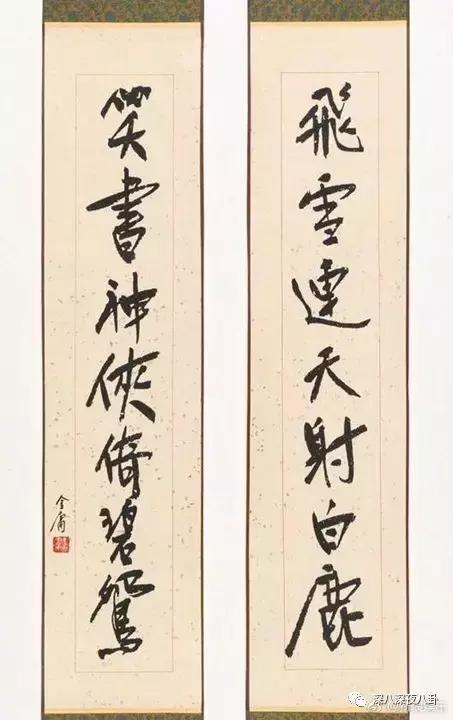 飛雪連天射白鹿
笑書神俠倚碧鴛
金庸
深八深夜八卦